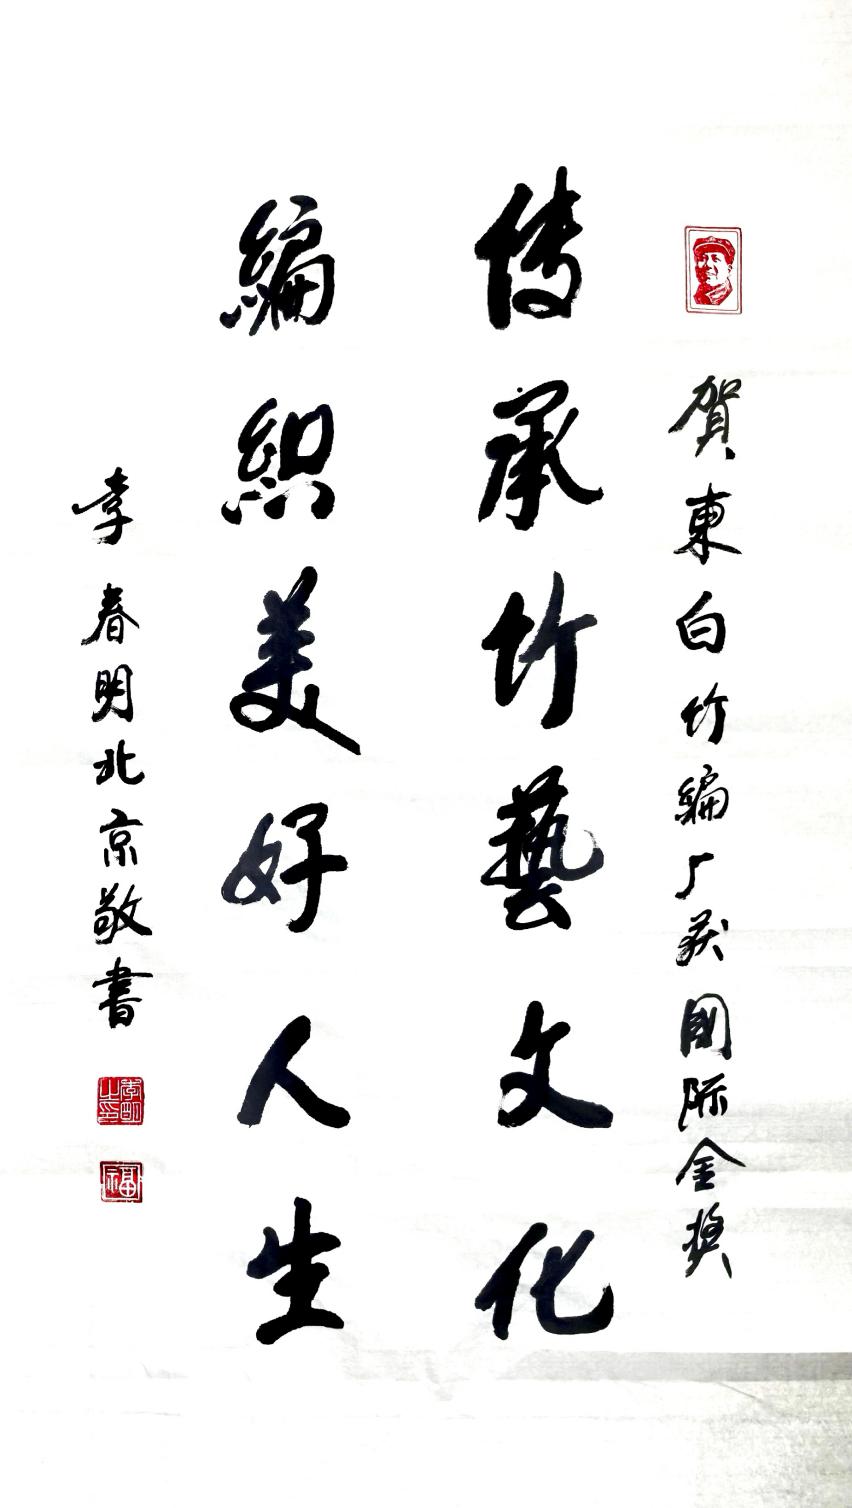 賀東白竹編厂获國际金奖
传承竹藝文化
編织美好人生
李春明北京敬書
福